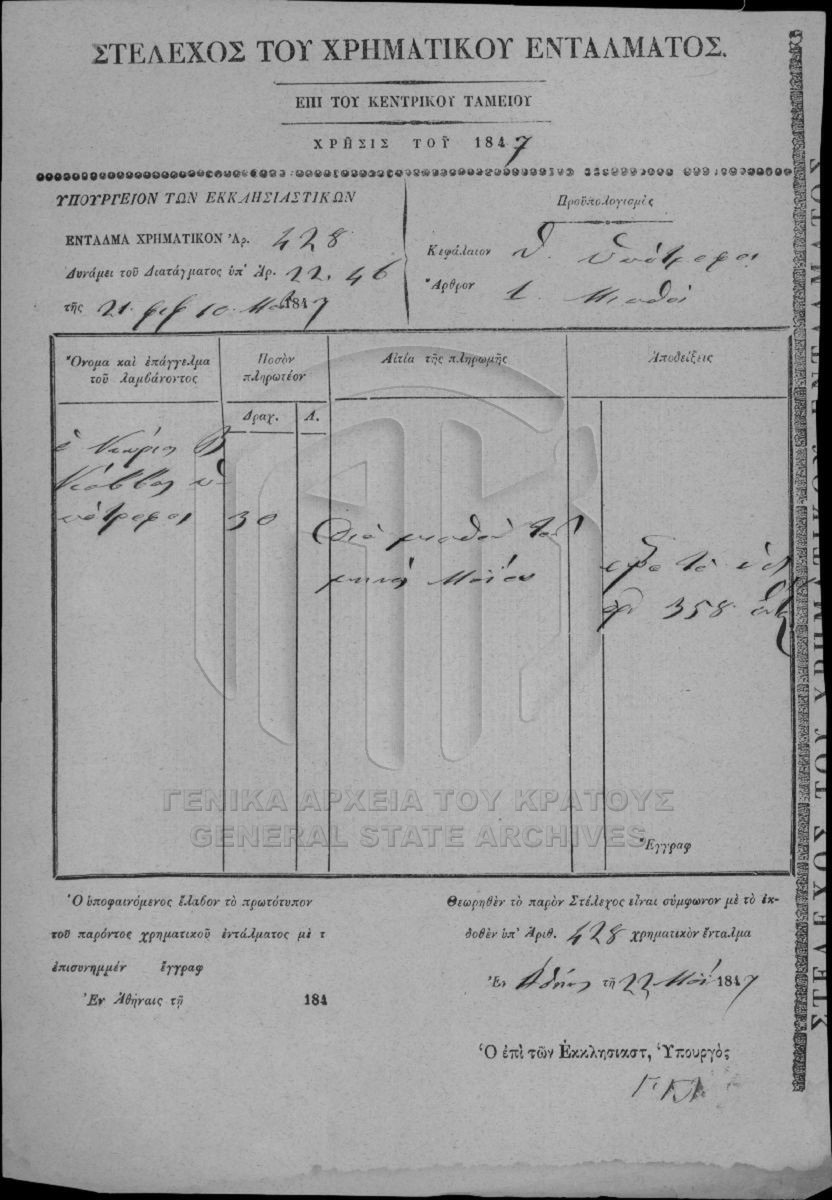 ΣΤΕΛΕΧΟΣ ΤΟΥ ΧΡΗΜΑΤΙΚΟΥ ΕΝΤΑΛΜΑΤΟΣ.
ΕΠΙ ΤΟΥ ΚΕΝΤΡΙΚΟΥ ΤΑΜΕΙΟΥ
ΧΡΗΣΙΣ ΤΟΥ 1847
ΥΠΟΥΡΓΕΙΟΝ ΤΩΝ ΕΚΚΛΗΣΙΑΣΤΙΚΩΝ
ΕΝΤΑΛΜΑ ΧΡΗΜΑΤΙΚΟΝ Ἀρ. 428
Δυνάμει τοῦ Διατάγματος ὑπ' Ἀρ. 22. 46
τῆς 21. φεβ 10. 1847
Προϋπολογισμὸς
Κεφάλαιον θ. Ὑπότροφοι
Ἄρθρον 1. Μισθοὶ
Ὄνομα καὶ ἐπάγγελμα
τοῦ λαμβάνοντος
Ποσὸν
πληρωτέον
Δραχ. Λ.
Αἰτία τῆς πληρωμῆς
Ἀποδείξεις
ὁ
ὑ
πότροφος 30
Διὰ μισθὸν τοῦ
μηνὸς Μαΐου
τὸ
358
Ἔγγραφ
ΓΕΝΙΚΑ ΑΡΧΕΙΑ ΤΟΥ ΚΡΑΤΟΥΣ
GENERAL STATE ARCHIVES
Ὁ ὑποφαινόμενος ἔλαβον τὸ πρωτότυπον
τοῦ παρόντος χρηματικοῦ ἐντάλματος μὲ τ
ἐπισυνημμέν ἔγγραφ
Ἐν Ἀθήναις τῇ 184
Θεωρηθὲν τὸ παρὸν Στέλεχος εἶναι σύμφωνον μὲ τὸ ἐκ-
δοθὲν ὑπ' Ἀριθ. 428 χρηματικὸν ἔνταλμα
Ἐν Ἀθήναις τῇ 22 Μαΐ 1847
Ὁ ἐπὶ τῶν Ἐκκλησιαστ, Ὑπουργὸς
ΣΤΕΛΕΧΟΣ ΤΟΥ ΧΡΗΜΑΤΙΚΟΥ ΕΝΤΑΛΜΑΤΟΣ